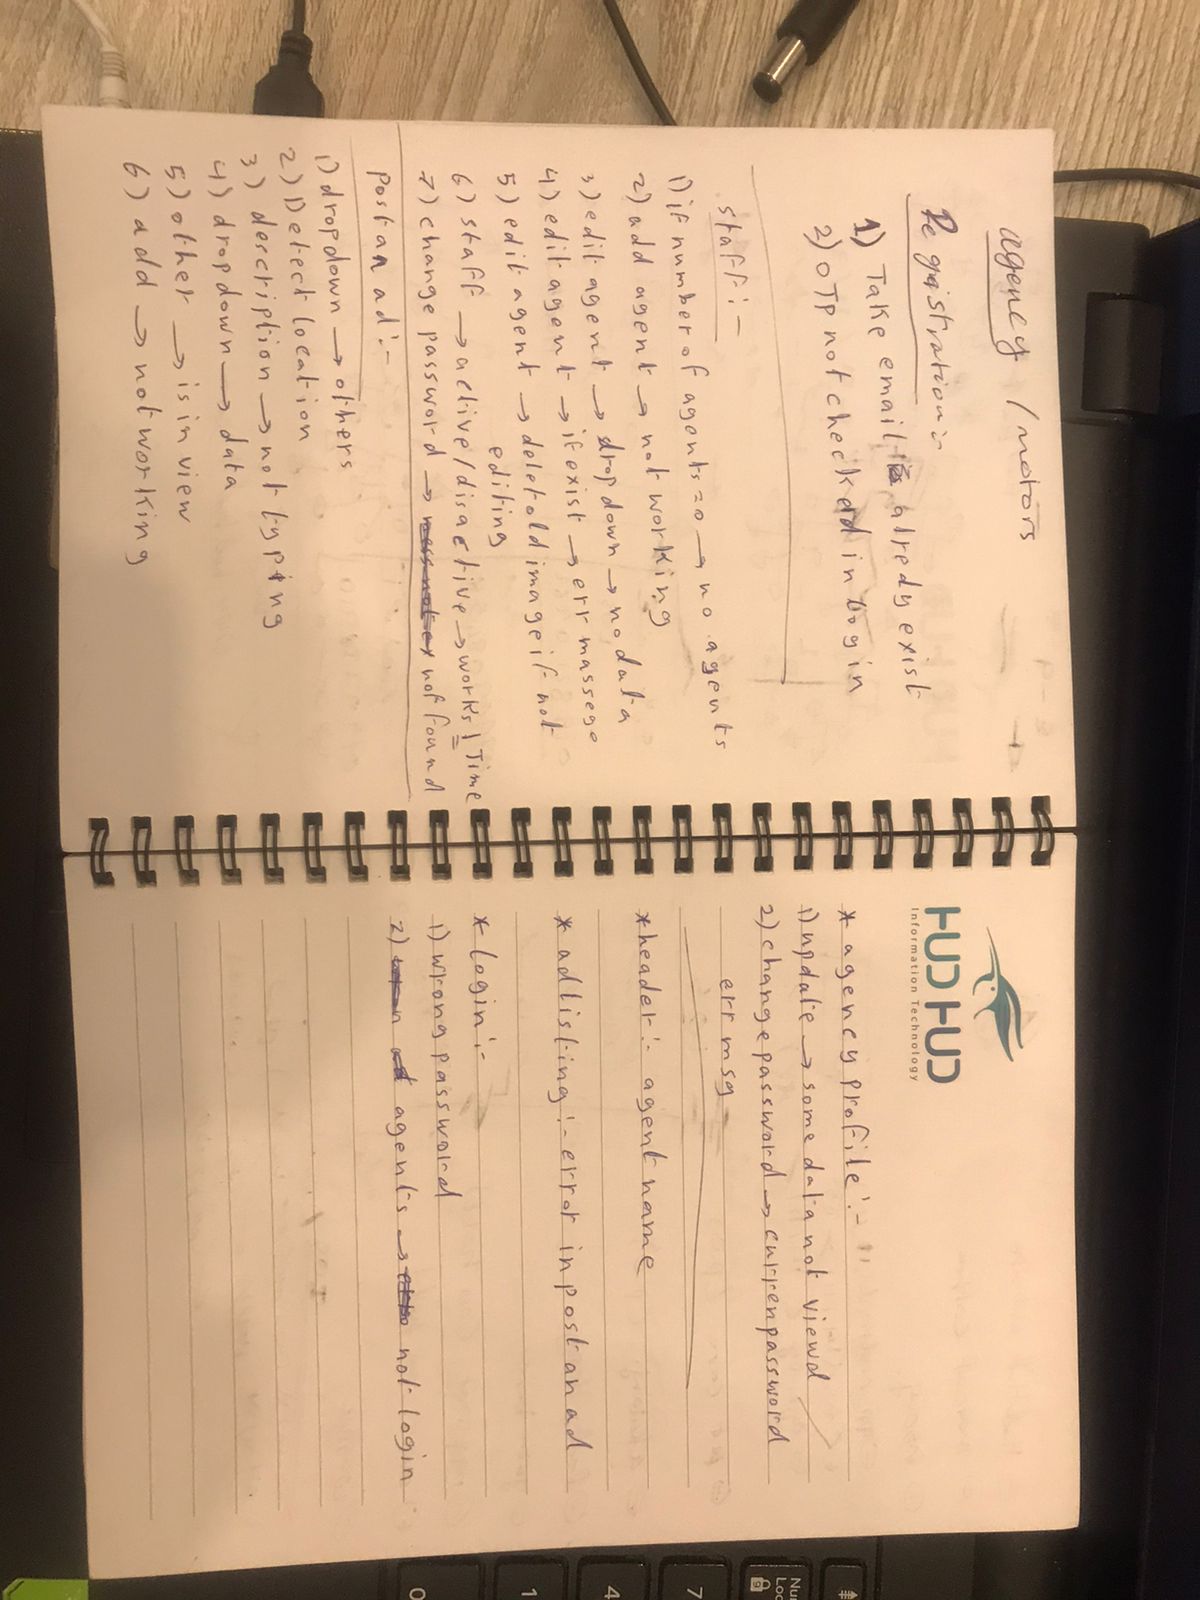 agency / motors
Registration:-
1) Take email is alredy exist
2) OTP not checked in login
staff:-
1) if number of agents = 0 → no agents
2) add agent → not working
3) edit agent → dropdown → no data
4) edit agent → if exist → err massege
5) edit agent → delet old image if not
editing
6) staff → active/disactive → works 1 Time
7) change password → not found
Post an ad:-
1) dropdown → others
2) Detect location
3) description → not typing
4) dropdown → data
5) other → is in view
6) add → not working
HUD HUD
Information Technology
* agency profile:-
1) update → some data not viewd
2) change password → curren password
err msg
* header:- agent name
* ad listing:- error in post an ad
* login:-
1) wrong password
2) agents → not login
Num
Loc
9
7
4
1
0